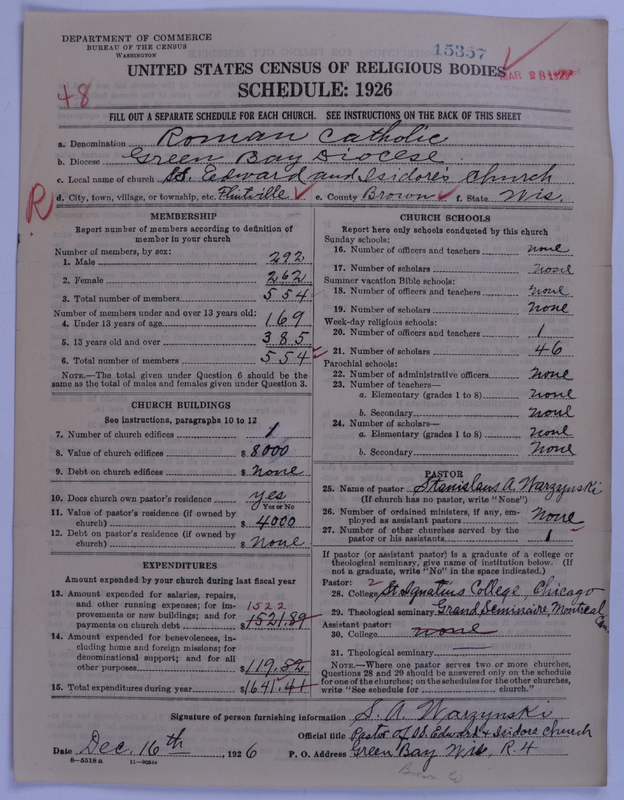 DEPARTMENT OF COMMERCE
BUREAU OF THE CENSUS
WASHINGTON
15357
MAR 28 1927
UNITED STATES CENSUS OF RELIGIOUS BODIES
SCHEDULE: 1926
48
FILL OUT A SEPARATE SCHEDULE FOR EACH CHURCH. SEE INSTRUCTIONS ON THE BACK OF THIS SHEET
a. Denomination Roman Catholic
b. Diocese Green Bay Diocese
c. Local name of church SS. Edward and Isidores Church
R
d. City, town, village, or township, etc. Flintville e. County Brown f. State Wis.
MEMBERSHIP
Report number of members according to definition of member in your church
Number of members, by sex:
1. Male 292
2. Female 262
3. Total number of members 554
Number of members under and over 13 years old:
4. Under 13 years of age 169
5. 13 years old and over 385
6. Total number of members 554
NOTE.—The total given under Question 6 should be the same as the total of males and females given under Question 3.
CHURCH BUILDINGS
See instructions, paragraphs 10 to 12
7. Number of church edifices 1
8. Value of church edifices $ 8000
9. Debt on church edifices $ None
10. Does church own pastor's residence yes
Yes or No
11. Value of pastor's residence (if owned by church) $ 4000
12. Debt on pastor's residence (if owned by church) $ None
EXPENDITURES
Amount expended by your church during last fiscal year
13. Amount expended for salaries, repairs, and other running expenses; for improvements or new buildings; and for payments on church debt $ 1521.89
1522
14. Amount expended for benevolences, including home and foreign missions; for denominational support; and for all other purposes $ 119.52
15. Total expenditures during year $ 1641.41
CHURCH SCHOOLS
Report here only schools conducted by this church
Sunday schools:
16. Number of officers and teachers none
17. Number of scholars none
Summer vacation Bible schools:
18. Number of officers and teachers none
19. Number of scholars none
Week-day religious schools:
20. Number of officers and teachers 1
21. Number of scholars 46
Parochial schools:
22. Number of administrative officers none
23. Number of teachers—
a. Elementary (grades 1 to 8) none
b. Secondary none
24. Number of scholars—
a. Elementary (grades 1 to 8) none
b. Secondary none
PASTOR
25. Name of pastor Stanislaus A. Warzynski
(If church has no pastor, write "None")
26. Number of ordained ministers, if any, employed as assistant pastors None
27. Number of other churches served by the pastor or his assistants 1
If pastor (or assistant pastor) is a graduate of a college or theological seminary, give name of institution below. (If not a graduate, write "No" in the space indicated.)
Pastor: 2
28. College St. Ignatius College, Chicago
29. Theological seminary Grand Seminaire, Montreal Can.
Assistant pastor:
30. College none
31. Theological seminary
NOTE.—Where one pastor serves two or more churches, Questions 28 and 29 should be answered only on the schedule for one of the churches; on the schedules for the other churches, write "See schedule for church."
Signature of person furnishing information S. A. Warzynski
Official title Pastor of SS. Edward & Isidore Church
Date Dec. 16th, 1926 P. O. Address Green Bay Wis. R. 4
8—5518 a
Brown Co